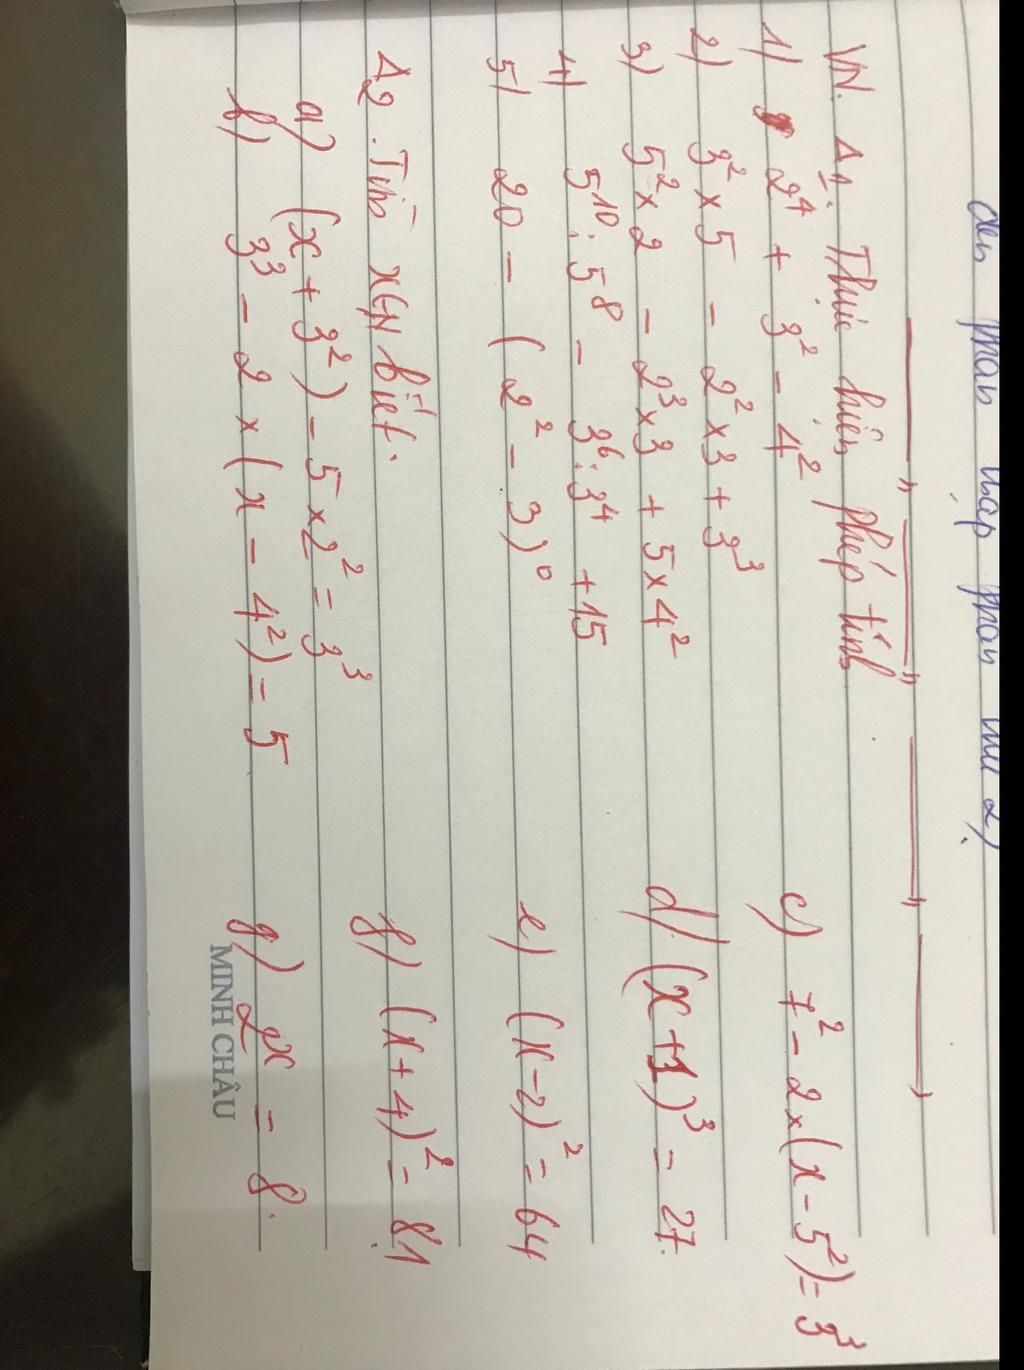 đến phần nháp phần mũ 2)
VN. Δ1. Thực hiện phép tính
1) 2⁴ + 3² - 4²
2) 3² × 5 - 2² × 3 + 3³
3) 5² × 2 - 2³ × 3 + 5 × 4²
4) 5¹⁰ : 5⁸ - 3⁶ : 3⁴ + 15
5) 20 - (2² - 3)⁰
Δ2. Tìm x∈N biết.
a) (x + 3²) - 5 × 2² = 3³
b) 3³ - 2 × (x - 4²) = 5
c) 7² - 2 × (x - 5²) = 3³
d) (x + 1)³ = 27.
e) (x - 2)² = 64
f) (x + 4)² = 81
g) 2ˣ = 8.
MINH CHÂU